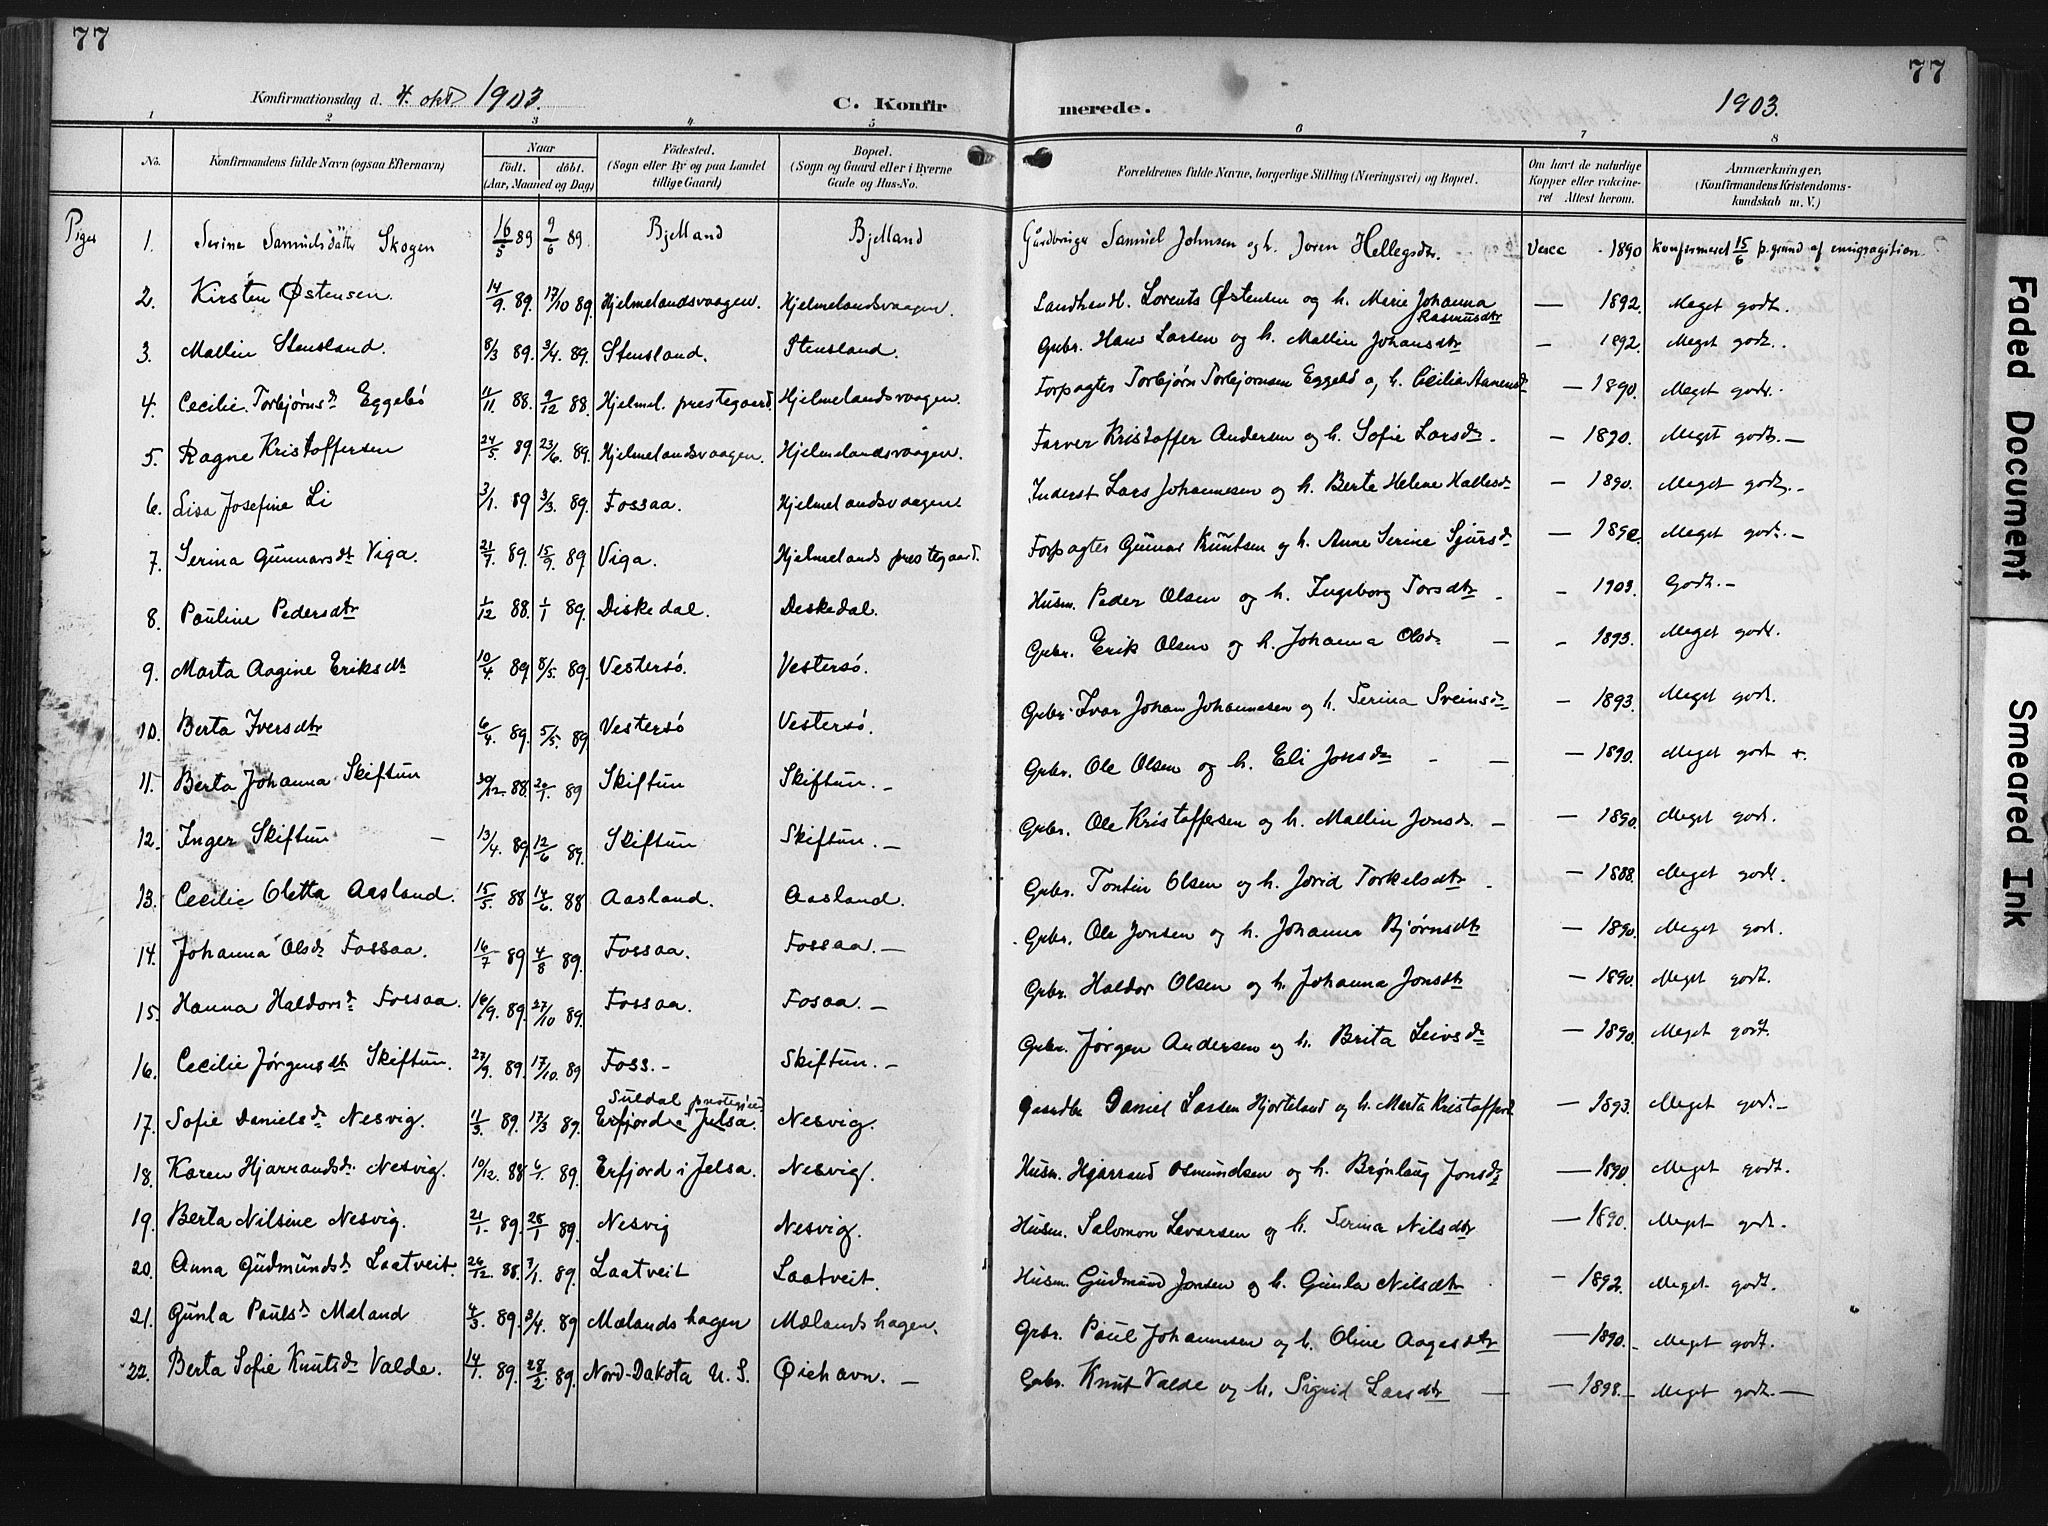 77
77
Konfirmationsdag d. 4. okt. 1903.
C. Konfirmerede.
1903.
1 2 3 4 5 6 7 8
No. Konfirmandens fulde Navn (ogsaa Efternavn) Naar Født. døbt. (Aar, Maaned og Dag) Fødested. (Sogn eller By og paa Landet tillige Gaard) Bopæl. (Sogn og Gaard eller i Byerne Gade og Hus-No. Forældrenes fulde Navne, borgerlige Stilling (Næringsvei) og Bopæl. Om havt de naturlige Kopper eller vakcineret Attest herom. Anmærkninger, (Konfirmandens Kristendomskundskab m. V.)
Piger
1. Serine Samuelsdatter Skogen 16/5 89 9/6 89. Bjelland Bjelland Gårdbruger Samuel Johnsen og h. Joren Hellegsdtr. Vacc - 1890 Konfirmeret 15/6 p. grund af emigragition
2. Kirsten Østensen 14/9 89. 17/10 89. Hjelmelandsvaagen. Hjelmelandsvaagen. Landhandl. Lorents Østensen og h. Marie Johanna Rasmusdtr — 1892. Meget godt.
3. Mallin Stensland. 8/3 89. 3/4. 89. Stensland. Stensland. Gbr. Hans Larsen og h. Mallin Johansdtr — 1892. Meget godt.
4. Cecilie Torbjørnsd. Eggebø 11/11 88. 9/12 88. Hjelmel. prestegaard. Hjelmelandsvaagen. Forpagter Torbjørn Torbjørnsen Eggebø og h. Cecilia Aanensd — 1890. Meget godt.
5. Ragne Kristoffersen 24/5 89. 23/6. 89. Hjelmelandsvaagen. Hjelmelandsvaagen. Farver Kristoffer Andersen og h. Sofie Larsd. — 1890. Meget godt. —
6. Lisa Josefine Li 3/1. 89 3/3. 89. Fossaa. Hjelmelandsvaagen. Inderst Lars Johannesen og h. Berte Helene Hallesd — 1890. Meget godt. -
7. Serina Gunnarsdt Viga. 21/7 89. 15/9. 89 Viga. Hjelmelands prestegaard. Forpagter Gunnar Knutsen og h. Anne Serine Sjursd — 1890. Meget godt. —
8. Pauline Pedersdtr 1/12 88. 1/1 89. Diskedal. Deskedal. Husm. Peder Olsen og h. Ingeborg Torsdtr - - 1903. Godt. -
9. Marta Aagine Eriksdt 10/4 89. 8/5. 89. Vestersø. Vestersø. Gbr. Erik Olsen og h. Johanna Olsd — - 1893. Meget godt.
10. Berta Iversdtr 6/4 89. 5/5. 89 Vestersø Vestersø. Gbr. Ivar Johan Johannesen og h. Serina Sveinsd — 1893. Meget godt.
11. Berta Johanna Skiftun 30/12. 88. 20/1 89 Skiftun Skiftun. - Gbr. Ole Olsen og h. Eli Jonsd - — — 1890. Meget godt +.
12. Inger Skiftun — 13/4. 89. 12/6 89. Skiftun Skiftun. - Gbr. Ole Kristoffersen og h. Mallin Jonsd. — — 1890. Meget godt.
13. Cecilie Oletta Aasland. 15/5. 88 14/6. 88 Aasland. Aasland. Gbr. Tontin Olsen og h. Jorid Torkelsdtr - — 1888. Meget godt.
14. Johanna Olsd. Fossaa. 16/7 89 4/8 89. Fossaa. Fossaa. — Gbr. Ole Jonsen og h. Johanna Bjørnsdtr — 1890. Meget godt.
15. Hanna Haldorsd. Fossaa. 16/9. 89. 27/10 89. Fossaa. Fosaa. — Gbr. Haldor Olsen og h. Johanna Jonsdtr — 1890. Meget godt.
16. Cecilie Jørgensdt. Skiftun. 27/9. 89. 17/10. 89 Foss. - Skiftun. - Gbr. Jørgen Andersen og h. Brita Leivsd — 1890. Meget godt.
Suldal prestegjeld
17. Sofie Danielsd. Nesvig. 11/3. 89. 17/3 89. Erfjord i Jelsa. Nesvig. Gaardbr Daniel Larsen Hjorteland og h. Marta Kristoffersd — 1893. Meget godt. -
18. Karen Hjarrandsd. Nesvig. 10/12. 88 6/1. 89. Erfjord i Jelsa. Nesvig. Husm. Hjarrand Osmundsen og h. Brønlaug Jonsd — 1890. Meget godt.
19. Berta Nilsine Nesvig. 21/1. 89. 28/1 89. Nesvig Nesvig. Husm. Salomon Levarsen og h. Serina Nilsdtr — 1890. Meget godt.
20. Anna Gudmundsd. Laatveit. 26/12. 88. 7/1. 89. Laatveit Laatveit. Husm. Gudmund Jonsen og h. Gunla Nilsdtr — 1892. Meget godt.
21. Gunla Paulsd. Mæland 4/3. 89. 3/4. 89 Mælandshagen Mælandshagen. Gbr. Paul Johannesen og h. Oline Aagesdtr — 1890. - Meget godt.
22. Berta Sofie Knutsd. Valde. 14/1. 89. 28/2. 89. Nord-Dakota U. S. Øiehavn. — Gbr. Knut Valde og h. Sigrid Larsdtr — — 1898. - Meget godt. —
Faded Document
Smeared Ink